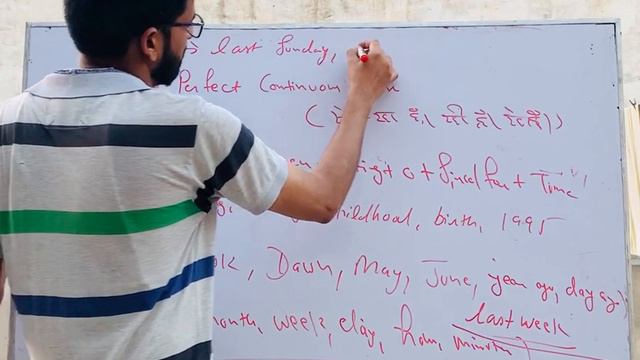 → last Sunday,
Perfect Continuous
( रहा है, रही है, रहे हैं )
+ since/for + Time
childhood, birth, 1995
Dawn, May, June, year ago, day ago)
month, week, day, hour, minute)
last week